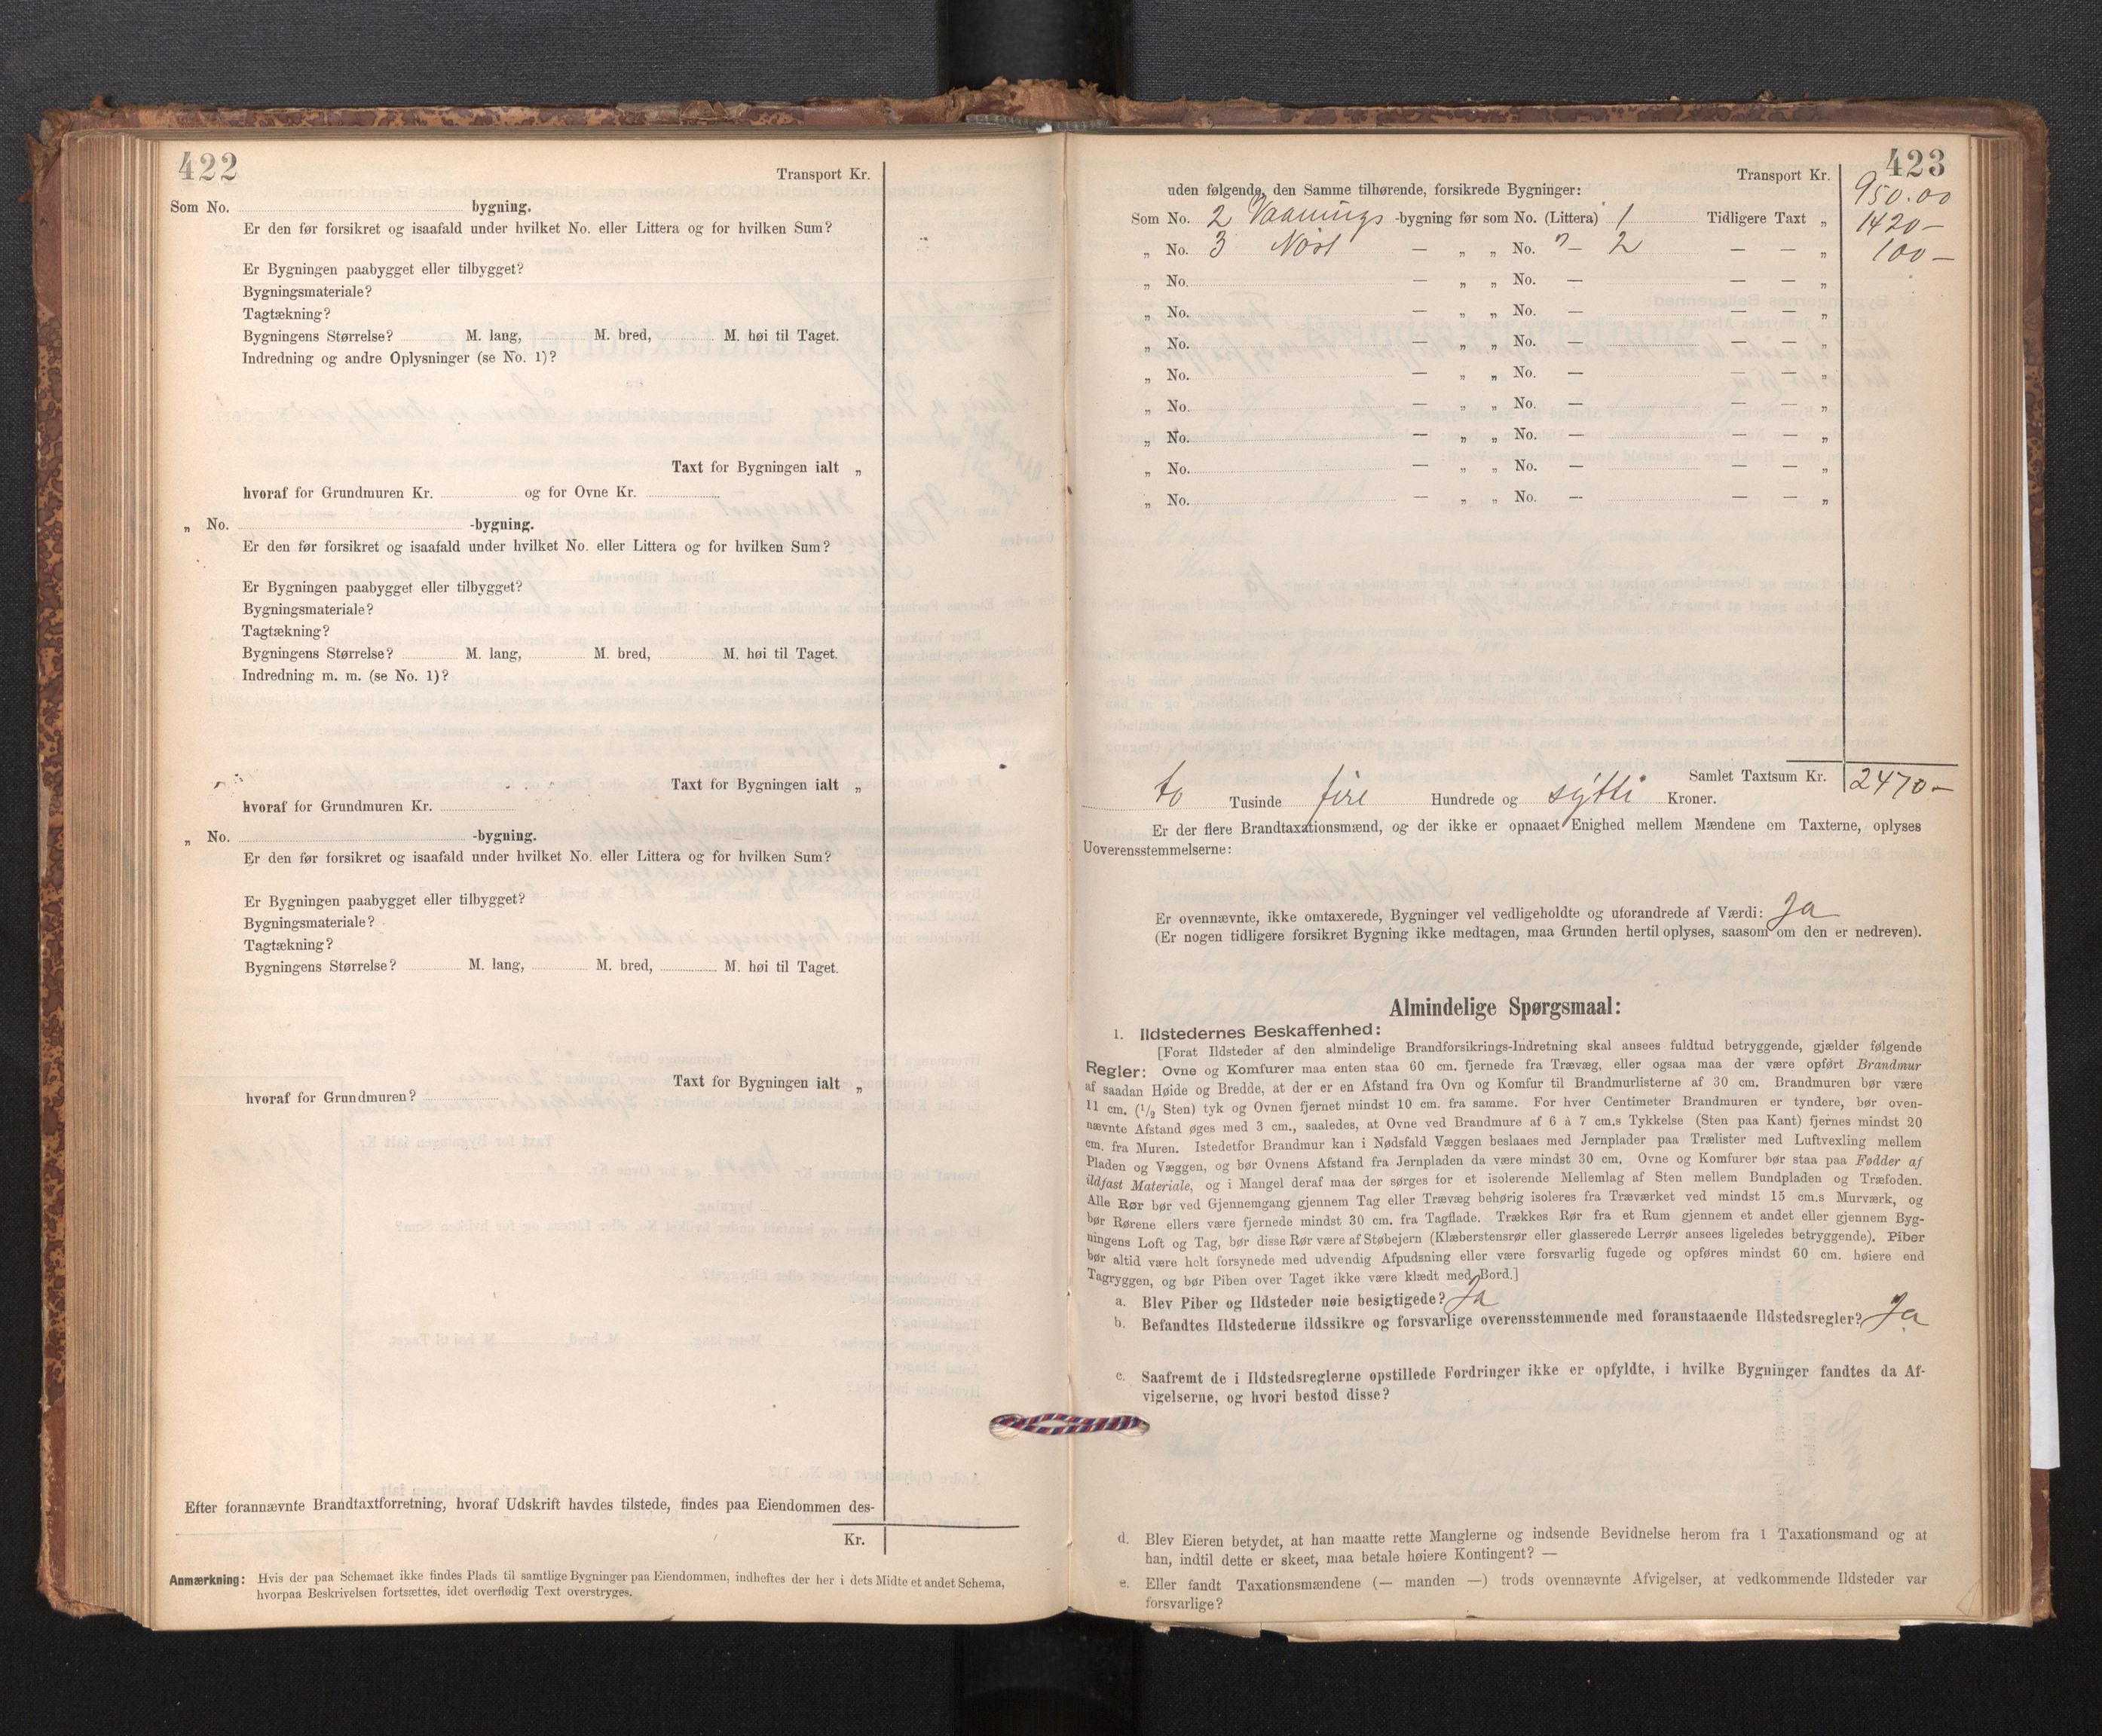 422
Transport Kr.
Som No. bygning.
Er den før forsikret og isaafald under hvilket No. eller Littera og for hvilken Sum?
Er Bygningen paabygget eller tilbygget?
Bygningsmateriale?
Tagtækning?
Bygningens Størrelse? M. lang, M. bred, M. høi til Taget.
Indredning og andre Oplysninger (se No. 1)?
Taxt for Bygningen ialt „
hvoraf for Grundmuren Kr. og for Ovne Kr.
„ No. -bygning.
Er den før forsikret og isaafald under hvilket No. eller Littera og for hvilken Sum?
Er Bygningen paabygget eller tilbygget?
Bygningsmateriale?
Tagtækning?
Bygningens Størrelse? M. lang, M. bred, M. høi til Taget.
Indredning m. m. (se No. 1)?
Taxt for Bygningen ialt „
hvoraf for Grundmuren Kr.
„ No. -bygning.
Er den før forsikret og isaafald under hvilket No. eller Littera og for hvilken Sum?
Er Bygningen paabygget eller tilbygget?
Bygningsmateriale?
Tagtækning?
Bygningens Størrelse? M. lang, M. bred, M. høi til Taget.
Taxt for Bygningen ialt „
hvoraf for Grundmuren?
Efter forannævnte Brandtaxtforretning, hvoraf Udskrift havdes tilstede, findes paa Eiendommen des-
Kr.
Anmærkning: Hvis der paa Schemaet ikke findes Plads til samtlige Bygninger paa Eiendommen, indheftes der her i dets Midte et andet Schema,
hvorpaa Beskrivelsen fortsættes, idet overflødig Text overstryges.
423
Transport Kr. 950.00
uden følgende, den Samme tilhørende, forsikrede Bygninger:
Som No. 2 Vaanings -bygning før som No. (Littera) 1 Tidligere Taxt „ 1420 –
„ No. 3 Nøst — „ „ No. "— 2 — — „ 100 –
„ No. — „ „ No. — — — „
„ No. — „ „ No. — — — „
„ No. — „ „ No. — — — „
„ No. — „ „ No. — — — „
„ No. — „ „ No. — — — „
„ No. — „ „ No. — — — „
„ No. — „ „ No. — — — „
„ No. — „ „ No. — — — „
Samlet Taxtsum Kr. 2470 –
to Tusinde fire Hundrede og sytti Kroner.
Er der flere Brandtaxationsmænd, og der ikke er opnaaet Enighed mellem Mændene om Taxterne, oplyses
Uoverensstemmelserne:
Er ovennævnte, ikke omtaxerede, Bygninger vel vedligeholdte og uforandrede af Værdi: Ja
(Er nogen tidligere forsikret Bygning ikke medtagen, maa Grunden hertil oplyses, saasom om den er nedreven).
Almindelige Spørgsmaal:
1. Ildstedernes Beskaffenhed:
[Forat Ildsteder af den almindelige Brandforsikrings-Indretning skal ansees fuldtud betryggende, gjælder følgende
Regler: Ovne og Komfurer maa enten staa 60 cm. fjernede fra Trævæg, eller ogsaa maa der være opført Brandmur
af saadan Høide og Bredde, at der er en Afstand fra Ovn og Komfur til Brandmurlisterne af 30 cm. Brandmuren bør være
11 cm. (1/2 Sten) tyk og Ovnen fjernet mindst 10 cm. fra samme. For hver Centimeter Brandmuren er tyndere, bør oven-
nævnte Afstand øges med 3 cm., saaledes, at Ovne ved Brandmure af 6 à 7 cm.s Tykkelse (Sten paa Kant) fjernes mindst 20
cm. fra Muren. Istedetfor Brandmur kan i Nødsfald Væggen beslaaes med Jernplader paa Trælister med Luftvexling mellem
Pladen og Væggen, og bør Ovnens Afstand fra Jernpladen da være mindst 30 cm. Ovne og Komfurer bør staa paa Fødder af
ildfast Materiale, og i Mangel deraf maa der sørges for et isolerende Mellemlag af Sten mellem Bundpladen og Træfoden.
Alle Rør bør ved Gjennemgang gjennem Tag eller Trævæg behørig isoleres fra Træværket ved mindst 15 cm.s Murværk, og
bør Rørene ellers være fjernede mindst 30 cm. fra Tagflade. Trækkes Rør fra et Rum gjennem et andet eller gjennem Byg-
ningens Loft og Tag, bør disse Rør være af Støbejern (Klæberstensrør eller glasserede Lerrør ansees ligeledes betryggende). Piber
bør altid være holt forsynede med udvendig Afpudsning eller være forsvarlig fugede og opføres mindst 60 cm. høiere end
Tagryggen, og bør Piben over Taget ikke være klædt med Bord.]
a. Blev Piber og Ildsteder nøie besigtigede? Ja
b. Befandtes Ildstederne ildssikre og forsvarlige overensstemmende med foranstaaende Ildstedsregler? Ja
c. Saafremt de i Ildstedsreglerne opstillede Fordringer ikke er opfyldte, i hvilke Bygninger fandtes da Af-
vigelserne, og hvori bestod disse?
d. Blev Eieren betydet, at han maatte rette Manglerne og indsende Bevidnelse herom fra 1 Taxationsmand og at
han, indtil dette er skeet, maa betale høiere Kontingent? —
e. Eller fandt Taxationsmændene (— manden —) trods ovennævnte Afvigelser, at vedkommende Ildsteder var
forsvarlige?